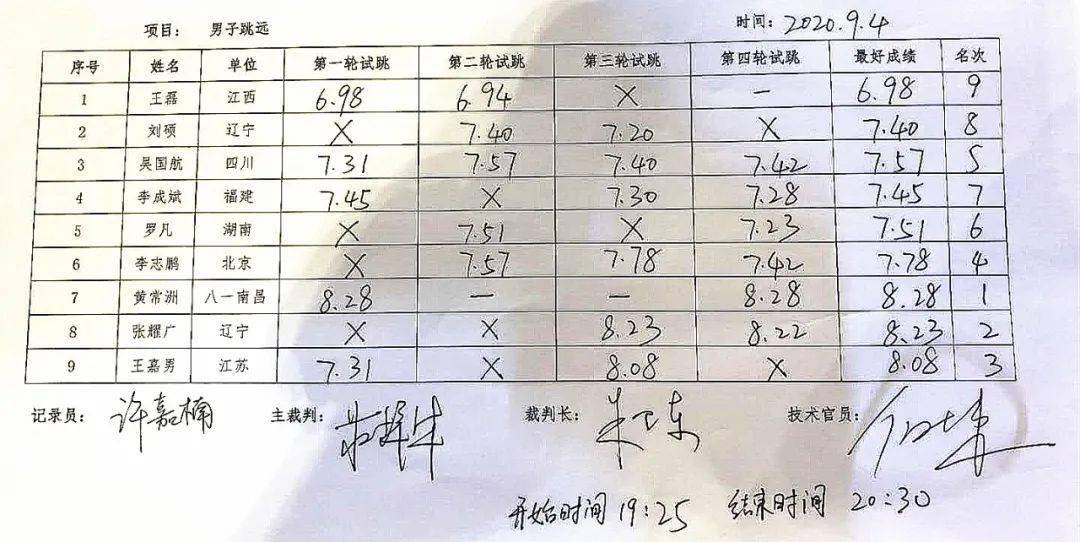 项目： 男子跳远 时间：2020.9.4
序号 姓名 单位 第一轮试跳 第二轮试跳 第三轮试跳 第四轮试跳 最好成绩 名次
1 王磊 江西 6.98 6.94 X — 6.98 9
2 刘硕 辽宁 X 7.40 7.20 X 7.40 8
3 吴国航 四川 7.31 7.57 7.40 7.42 7.57 5
4 李成斌 福建 7.45 X 7.30 7.28 7.45 7
5 罗凡 湖南 X 7.51 X 7.23 7.51 6
6 李志鹏 北京 X 7.57 7.78 7.42 7.78 4
7 黄常洲 八一南昌 8.28 — — 8.28 8.28 1
8 张耀广 辽宁 X X 8.23 8.22 8.23 2
9 王嘉男 江苏 7.31 X 8.08 X 8.08 3
记录员： 许嘉楠 主裁判： 裁判长： 技术官员：
开始时间 19:25 结束时间 20:30